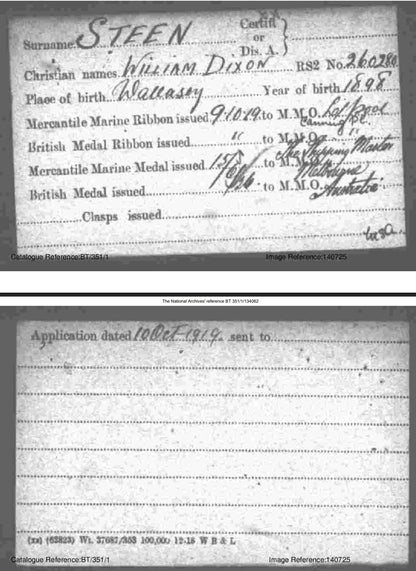 Certift
Surname. STEEN or
Dis. A.
Christian names. WILLIAM DIXON RS2 No. 260280
Place of birth. Wallasey Year of birth 1898
Mercantile Marine Ribbon issued 9.10.19. to M.M.O. L'pool
Canning St.
British Medal Ribbon issued. " to M.M.O. "
Mercantile Marine Medal issued to M.M.O. The Shipping Master
Melbourne
British Medal issued to M.M.O. Australia
Clasps issued
Catalogue Reference:BT/351/1 Image Reference:140725
The National Archives' reference BT 351/1/134062
Application dated 10 Oct 1919. sent to
(xx) (63823) Wt. 37687/353 100,000 12.18 W B & L
Catalogue Reference:BT/351/1 Image Reference:140725